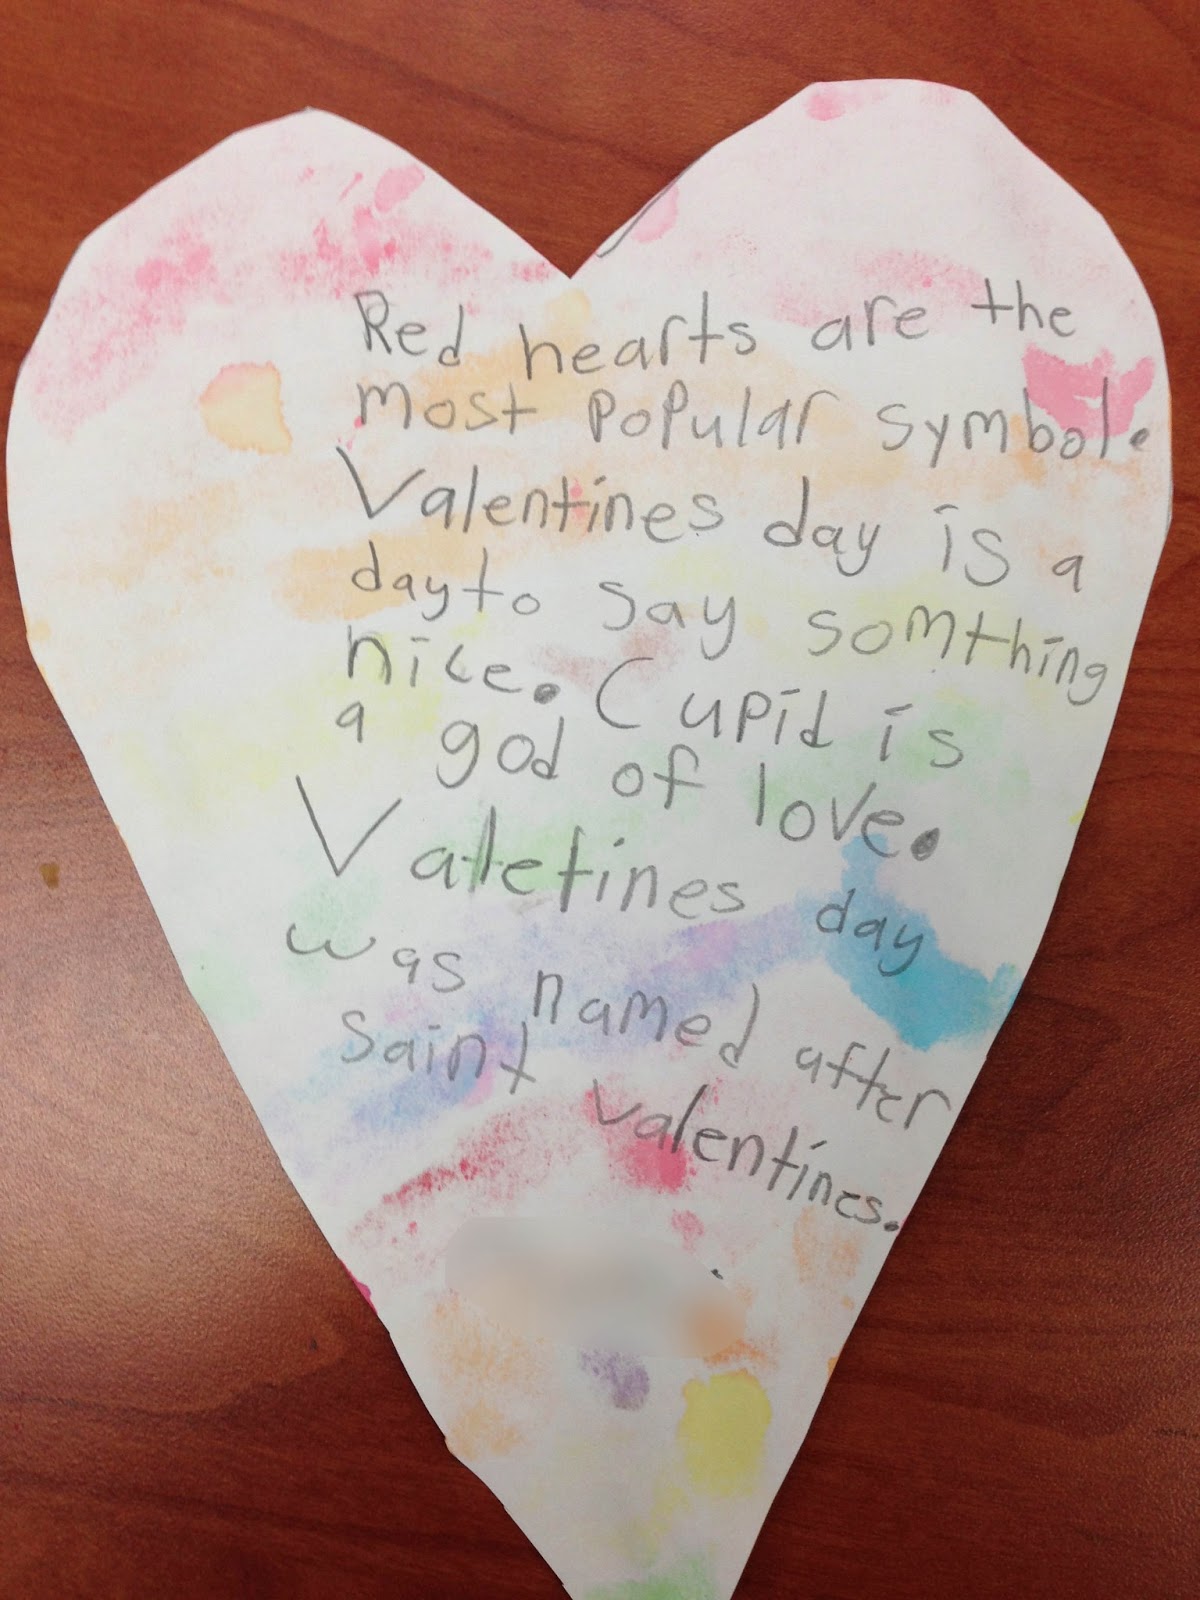 Red hearts are the
most popular symbol.
Valentines day is a
day to say somthing
nice. Cupid is
a god of love.
Valletines day
was named after
saint valentines.